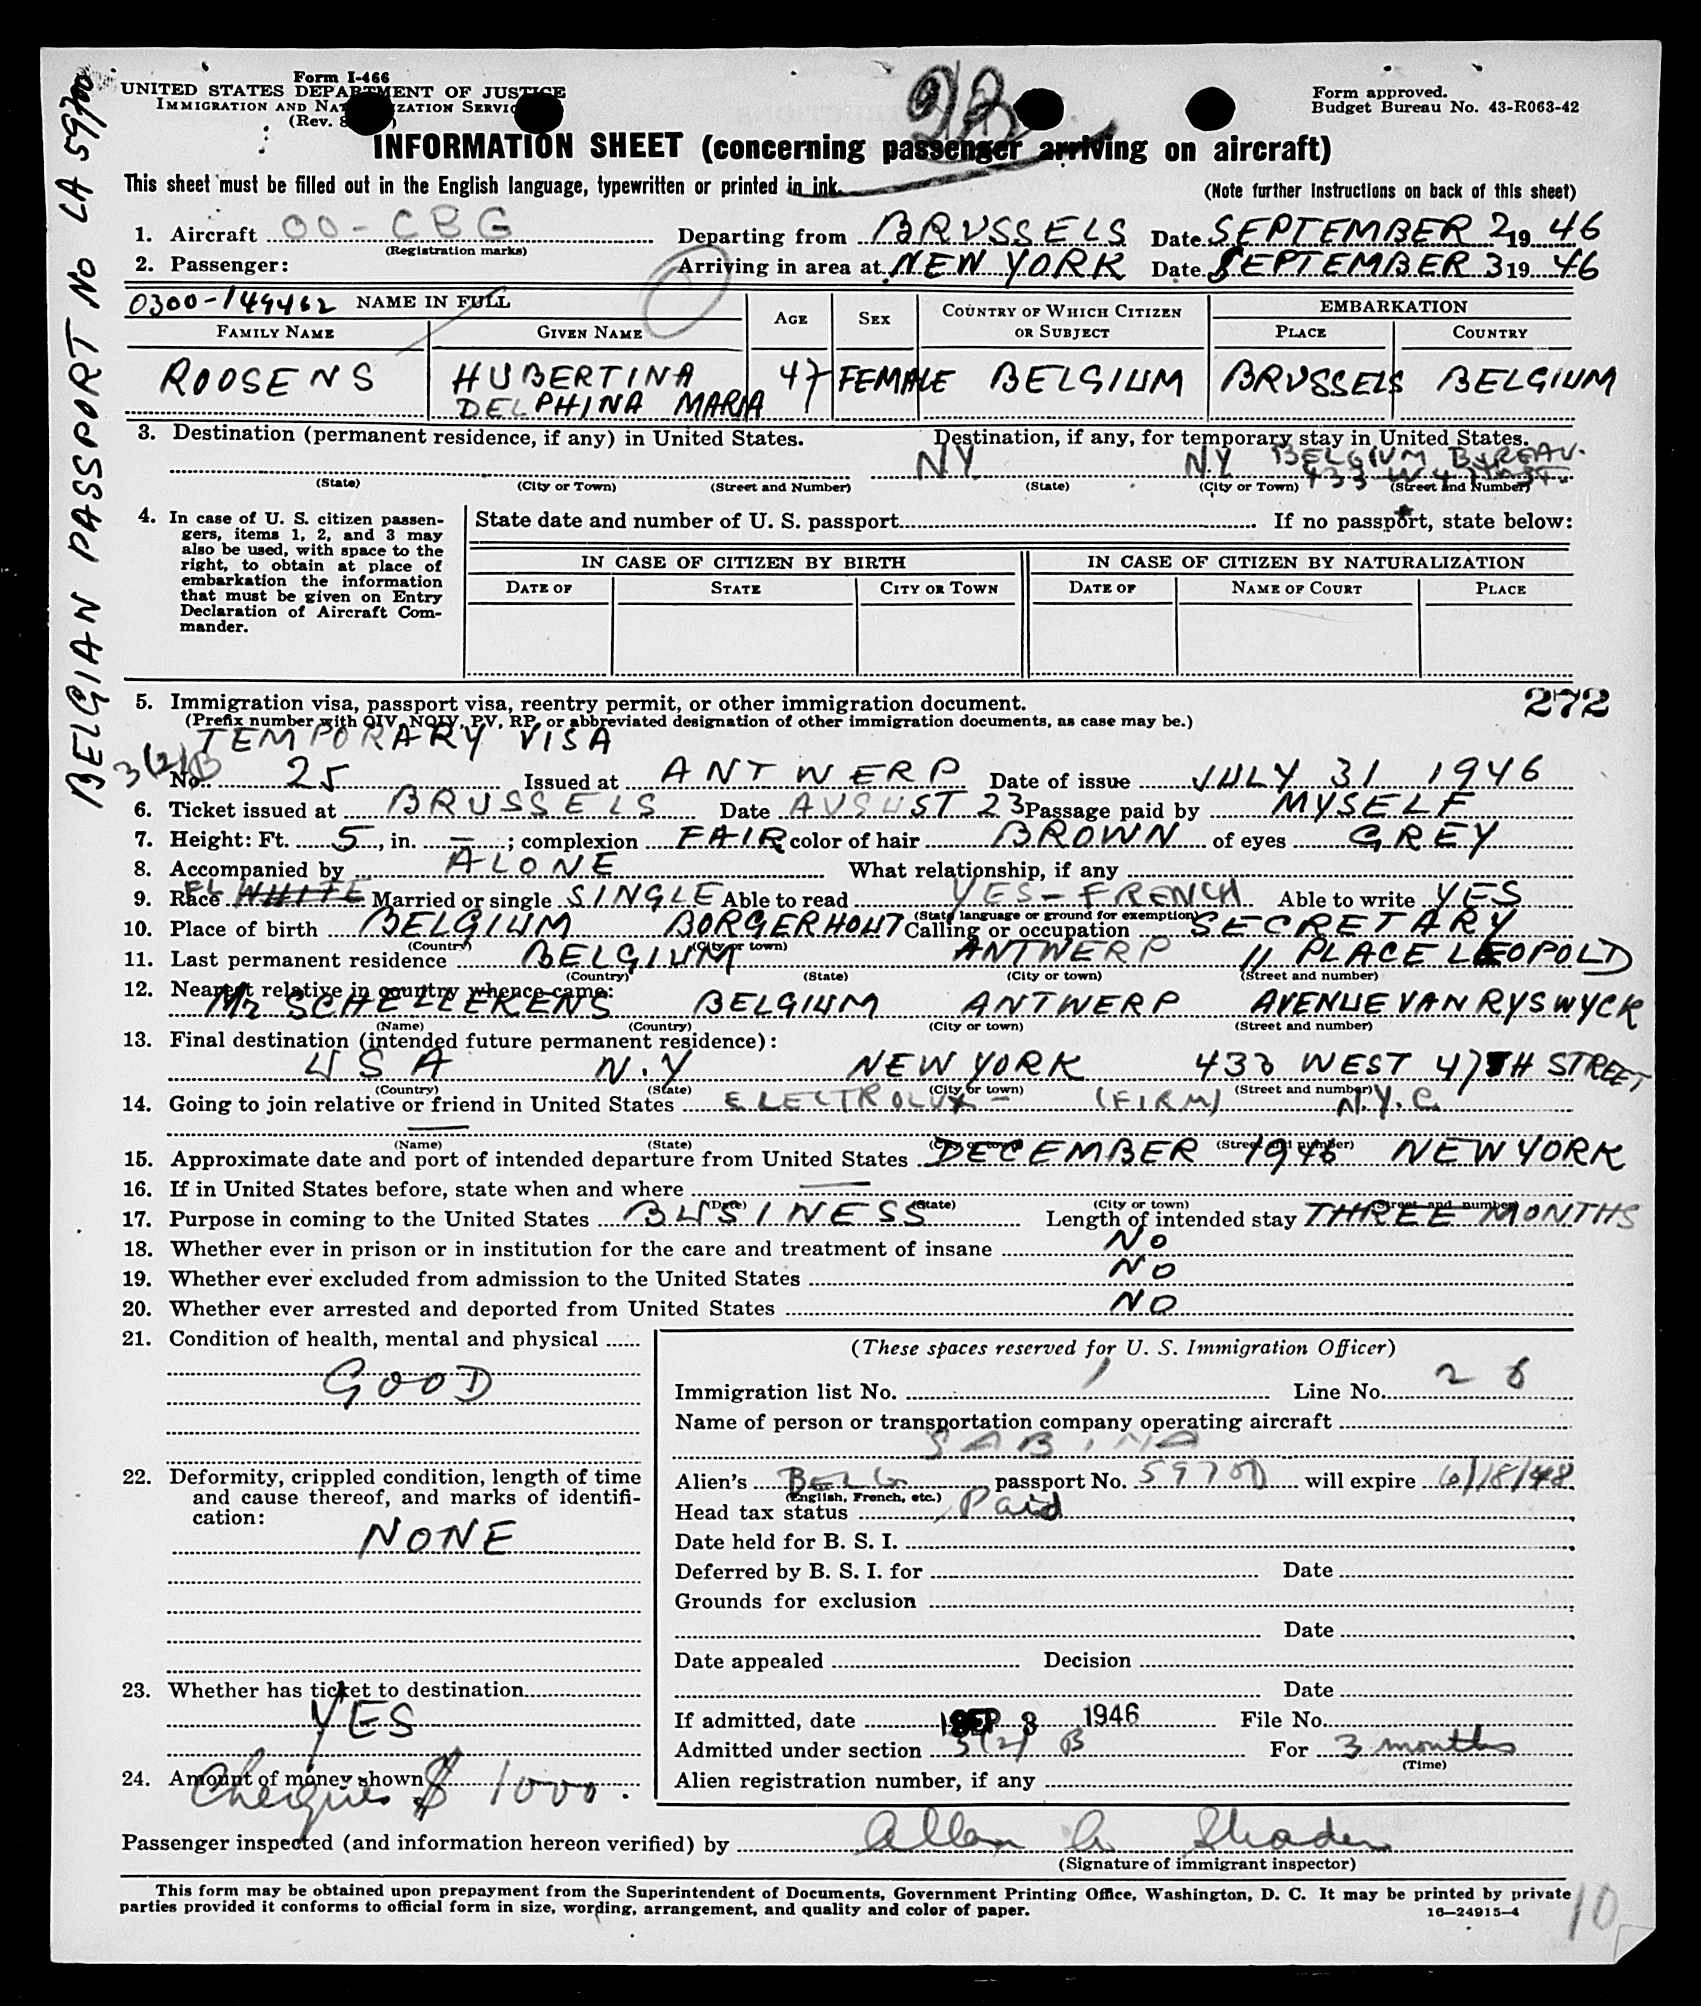 Form I-466
UNITED STATES DEPARTMENT OF JUSTICE
IMMIGRATION AND NATURALIZATION SERVICE
(Rev.
Form approved.
Budget Bureau No. 43-R063-42
INFORMATION SHEET (concerning passenger arriving on aircraft)
This sheet must be filled out in the English language, typewritten or printed in ink.
(Note further instructions on back of this sheet)
BELGIAN PASSPORT No LA 59700
1. Aircraft OO-CBG Departing from BRUSSELS Date SEPTEMBER 2 1946
(Registration marks)
2. Passenger: Arriving in area at NEW YORK Date SEPTEMBER 3 1946
0300-149462 NAME IN FULL AGE SEX COUNTRY OF WHICH CITIZEN OR SUBJECT EMBARKATION
FAMILY NAME GIVEN NAME PLACE COUNTRY
ROOSENS HUBERTINA 47 FEMALE BELGIUM BRUSSELS BELGIUM
DELPHINA MARIA
3. Destination (permanent residence, if any) in United States. Destination, if any, for temporary stay in United States.
NY N.Y BELGIUM BUREAU.
(State) (City or Town) (Street and Number) (State) (City or Town) (Street and Number)
4. In case of U. S. citizen passengers, items 1, 2, and 3 may also be used, with space to the right, to obtain at place of embarkation the information that must be given on Entry Declaration of Aircraft Commander.
State date and number of U. S. passport If no passport, state below:
IN CASE OF CITIZEN BY BIRTH IN CASE OF CITIZEN BY NATURALIZATION
DATE OF STATE CITY OR TOWN DATE OF NAME OF COURT PLACE
272
5. Immigration visa, passport visa, reentry permit, or other immigration document.
(Prefix number with QIV, NQIV, PV, RP, or abbreviated designation of other immigration documents, as case may be.)
TEMPORARY VISA
3(2)B
No. 25 Issued at ANTWERP Date of issue JULY 31 1946
6. Ticket issued at BRUSSELS Date AUGUST 23 Passage paid by MYSELF
7. Height: Ft. 5, in. —; complexion FAIR color of hair BROWN of eyes GREY
8. Accompanied by ALONE What relationship, if any
9. Race WHITE Married or single SINGLE Able to read YES - FRENCH Able to write YES
(State language or ground for exemption)
10. Place of birth BELGIUM BORGERHOUT Calling or occupation SECRETARY
(Country) (City or town)
11. Last permanent residence BELGIUM ANTWERP 11 PLACE LEOPOLD
(Country) (State) (City or town) (Street and number)
12. Nearest relative in country whence came:
Mr SCHELLEKENS BELGIUM ANTWERP AVENUE VAN RYSWYCK
(Name) (Country) (City or town) (Street and number)
13. Final destination (intended future permanent residence):
USA N.Y NEW YORK 433 WEST 47TH STREET
(Country) (State) (City or town) (Street and number)
14. Going to join relative or friend in United States ELECTROLUX - (FIRM) N.Y.C.
(Name) (State) (City or town) (Street and number)
15. Approximate date and port of intended departure from United States DECEMBER 1946 NEW YORK
16. If in United States before, state when and where —
(Date) (State) (City or town) (Street and number)
17. Purpose in coming to the United States BUSINESS Length of intended stay THREE MONTHS
18. Whether ever in prison or in institution for the care and treatment of insane NO
19. Whether ever excluded from admission to the United States NO
20. Whether ever arrested and deported from United States NO
21. Condition of health, mental and physical
GOOD
22. Deformity, crippled condition, length of time and cause thereof, and marks of identification:
NONE
23. Whether has ticket to destination
YES
24. Amount of money shown
Cheques $ 1000.
(These spaces reserved for U. S. Immigration Officer)
Immigration list No. 1 Line No. 28
Name of person or transportation company operating aircraft
SABENA
Alien's BELG. passport No. 59700 will expire 6/18/48
(English, French, etc.)
Head tax status Paid
Date held for B. S. I.
Deferred by B. S. I. for Date
Grounds for exclusion
Date
Date appealed Decision
Date
If admitted, date SEP 3 1946 File No.
Admitted under section 3(2) B For 3 months
(Time)
Alien registration number, if any
Passenger inspected (and information hereon verified) by Allan
(Signature of immigrant inspector)
This form may be obtained upon prepayment from the Superintendent of Documents, Government Printing Office, Washington, D. C. It may be printed by private
parties provided it conforms to official form in size, wording, arrangement, and quality and color of paper.
16—24915-4
10